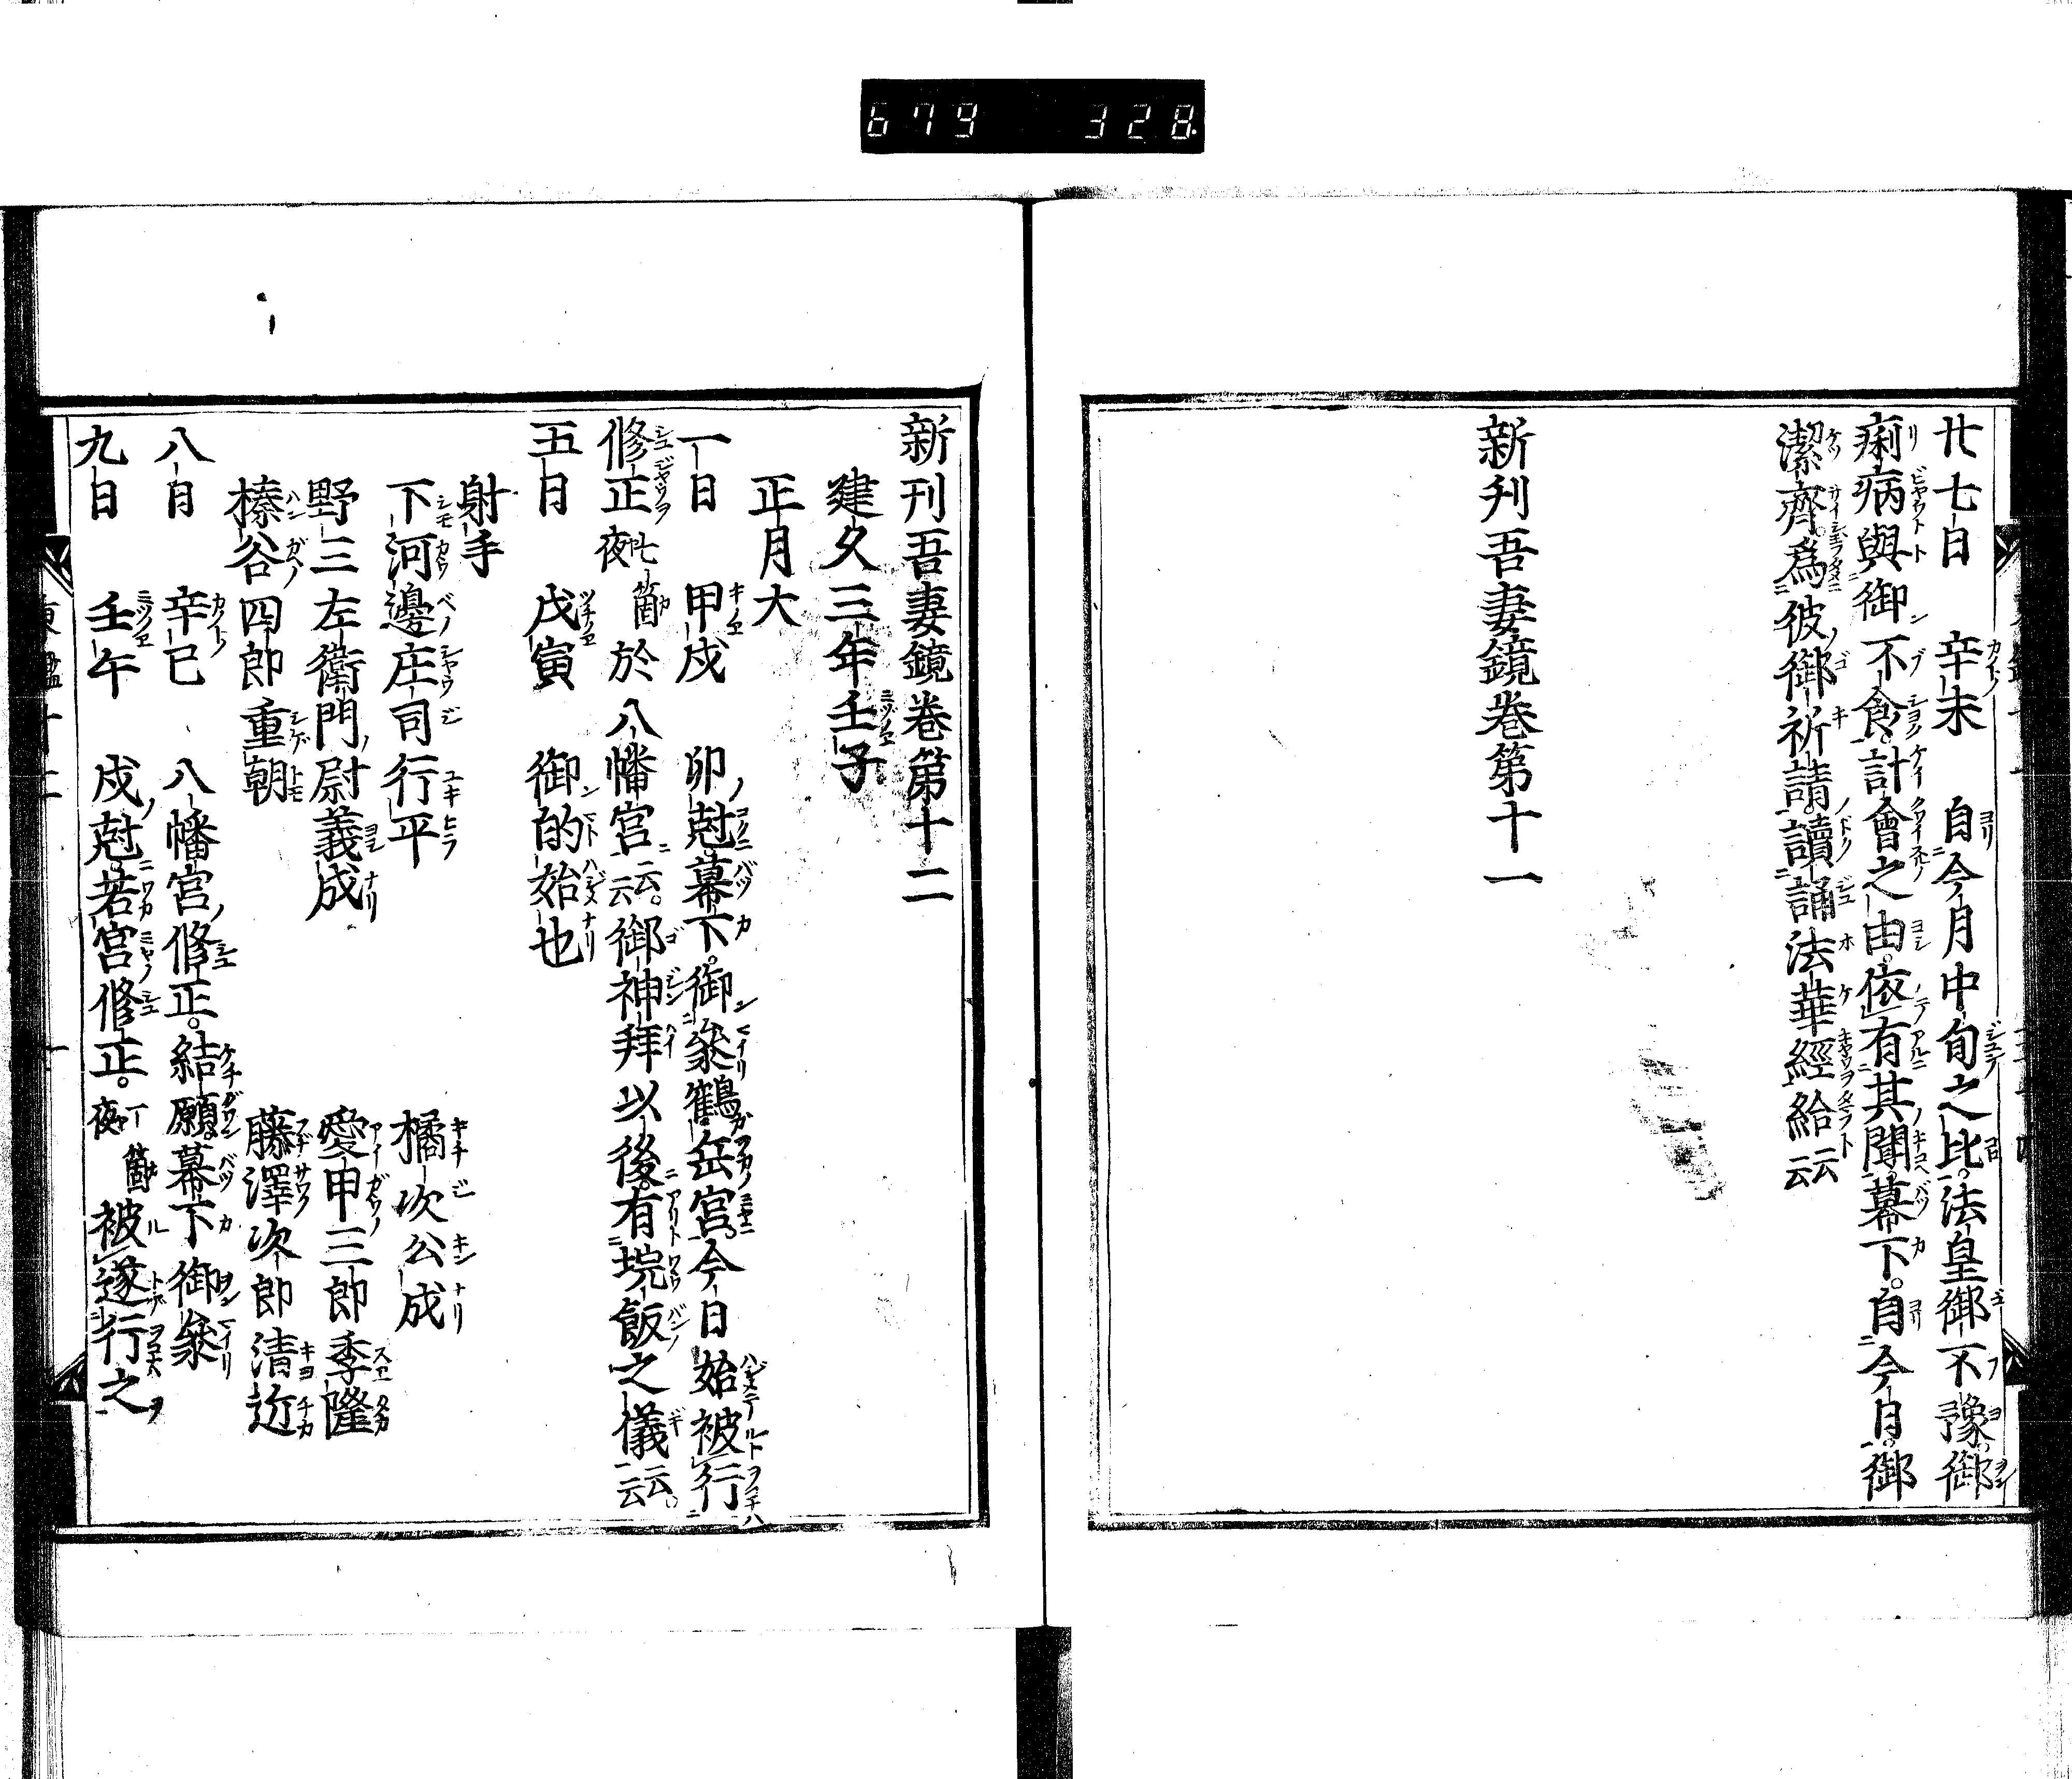 679 328.
廿七日 辛未 自今月中旬之比。法皇御不豫。御
痢病與御不食。計會之由。依有其聞。幕下。自今日。御
潔齋。爲彼御祈請。讀誦法華經給云云
新刋吾妻鏡卷第十一
新刋吾妻鏡卷第十二
建久三年壬子
正月大
一日 甲戌 卯尅。幕下。御參鶴岳宮。今日始被行
修正七箇夜於八幡宮云云。御神拜以後。有埦飯之儀云云。
五日 戊寅 御的始也
射手
下河邊庄司行平 橘次公成
野三左衛門尉義成 愛甲三郎季隆
榛谷四郎重朝 藤澤次郎清近
八日 辛巳 八幡宮修正。結願。幕下御參
九日 壬午 戌尅。若宮修正。一箇夜被遂行之